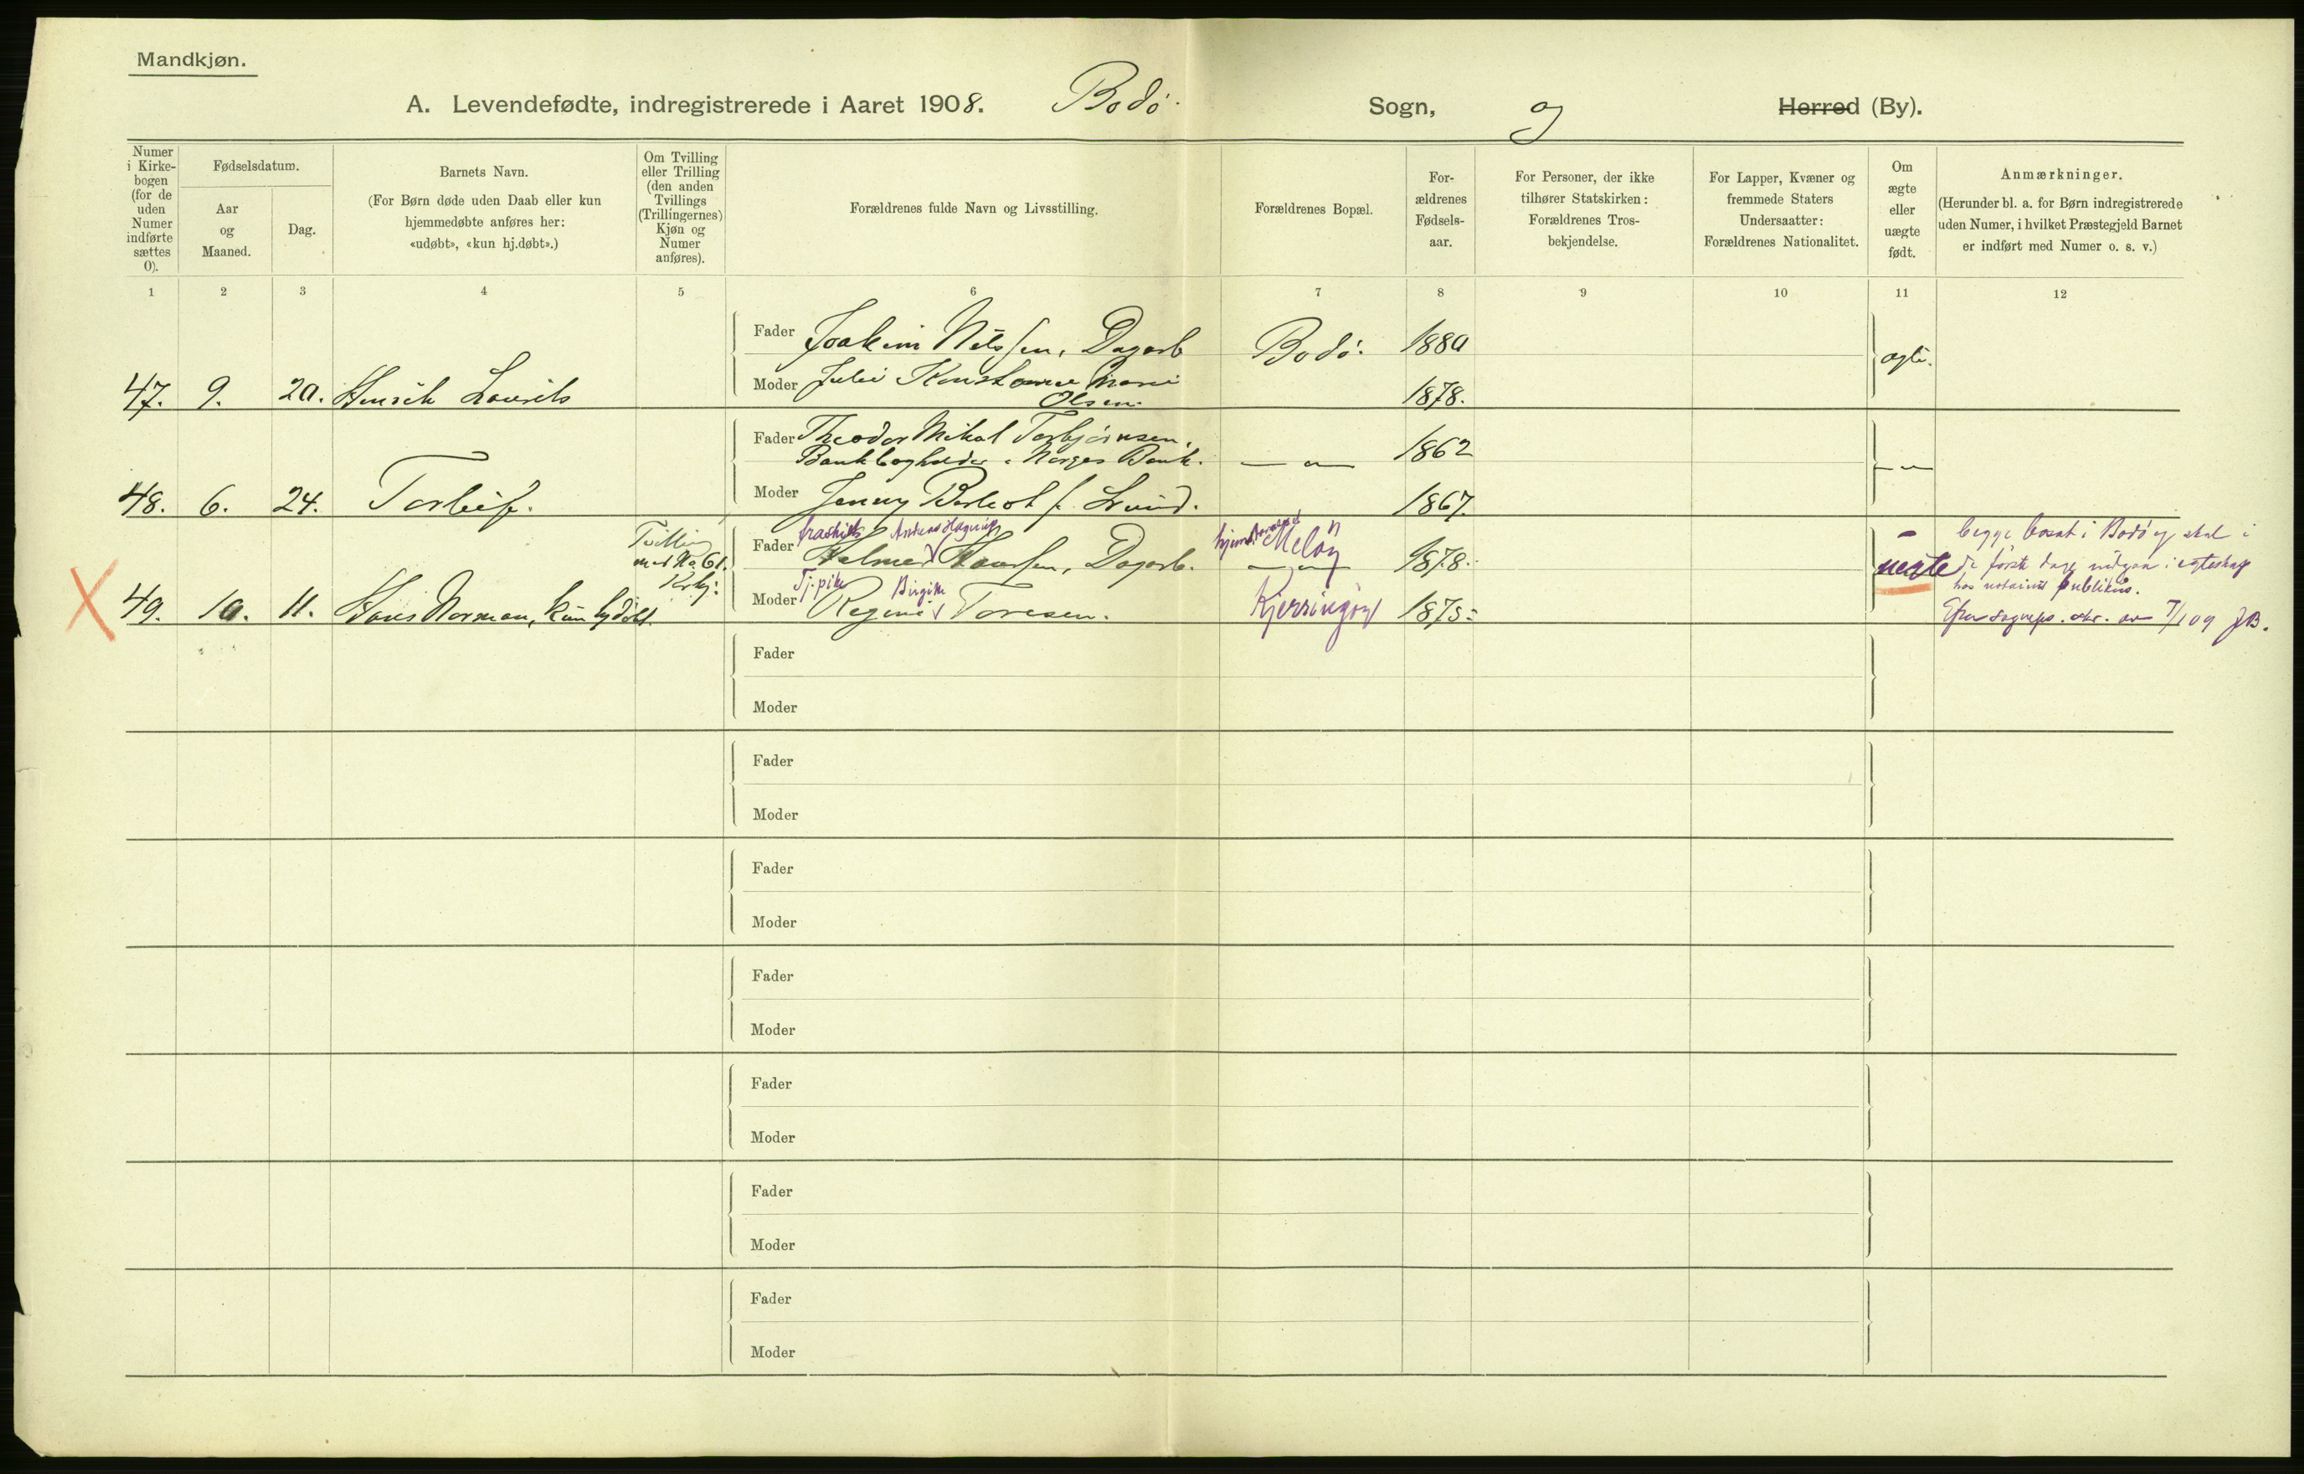 Mandkjøn.
A. Levendefødte, indregistrerede i Aaret 1908. Bodø. Sogn, og Herred (By).
Numer i Kirke-bogen (for de uden Numer indførte sættes 0).
Fødselsdatum.
Aar og Maaned.
Dag.
Barnets Navn.
(For Børn døde uden Daab eller kun
hjemmedøbte anføres her:
«udøbt», «kun hj.døbt».)
Om Tvilling
eller Trilling
(den anden
Tvillings
(Trillingernes)
Kjøn og
Numer
anføres).
Forældrenes fulde Navn og Livsstilling.
Forældrenes Bopæl.
For-
ældrenes
Fødsels-
aar.
For Personer, der ikke
tilhører Statskirken:
Forældrenes Tros-
bekjendelse.
For Lapper, Kvæner og
fremmede Staters
Undersaatter:
Forældrenes Nationalitet.
Om
ægte
eller
uægte
født.
Anmærkninger.
(Herunder bl. a. for Børn indregistrerede
uden Numer, i hvilket Præstegjeld Barnet
er indført med Numer o. s. v.)
1 2 3 4 5 6 7 8 9 10 11 12
Fader Joakim Nilssen, Dagarb Bodø. 1880 ægte.
47. 9. 20. Henrik Laurits Moder Julie Konstance Marie 1878.
Olsen.
Fader Theodor Mikal Torbjørnsen, 1862
Bankbogholder i Norges Bank. — " — — " —
48. 6. 24. Torleif. Moder Jenny Berleot f. Lund. 1867.
Tvilling
med No 61.
fraskilt Andreas Hagerup hjemstavnsret Meløy
Fader Helmer Hansen, Dagarb. — " — 1878. uegte
Tj.pike Birgitte
49. 10. 11. Hans Norman, kun hjdøbt. Moder Regine Toresen. Kjerringøy 1875
begge bosat i Bodø og skal i
de første dage indgaa i egteskap
hos notarius publikus.
Efter sognepr. skr. av 7/1 09 JB.
Fader
Moder
Fader
Moder
Fader
Moder
Fader
Moder
Fader
Moder
Fader
Moder
Fader
Moder